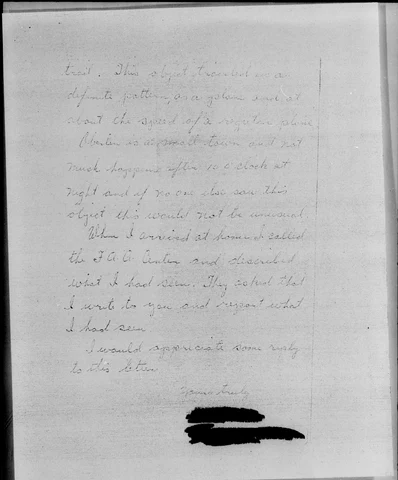 trail. This object traveled in a
definite pattern, as a plane and at
about the speed of a regular plane
is a small town and not
much happens after 10 o clock at
night and if no one else saw this
object this would not be unusual
When I arrived at home I called
the F.A.A. Center and described
what I had seen. They asked that
I write to you and report what
I had seen
I would appreciate some reply
to this letter
Yours truly